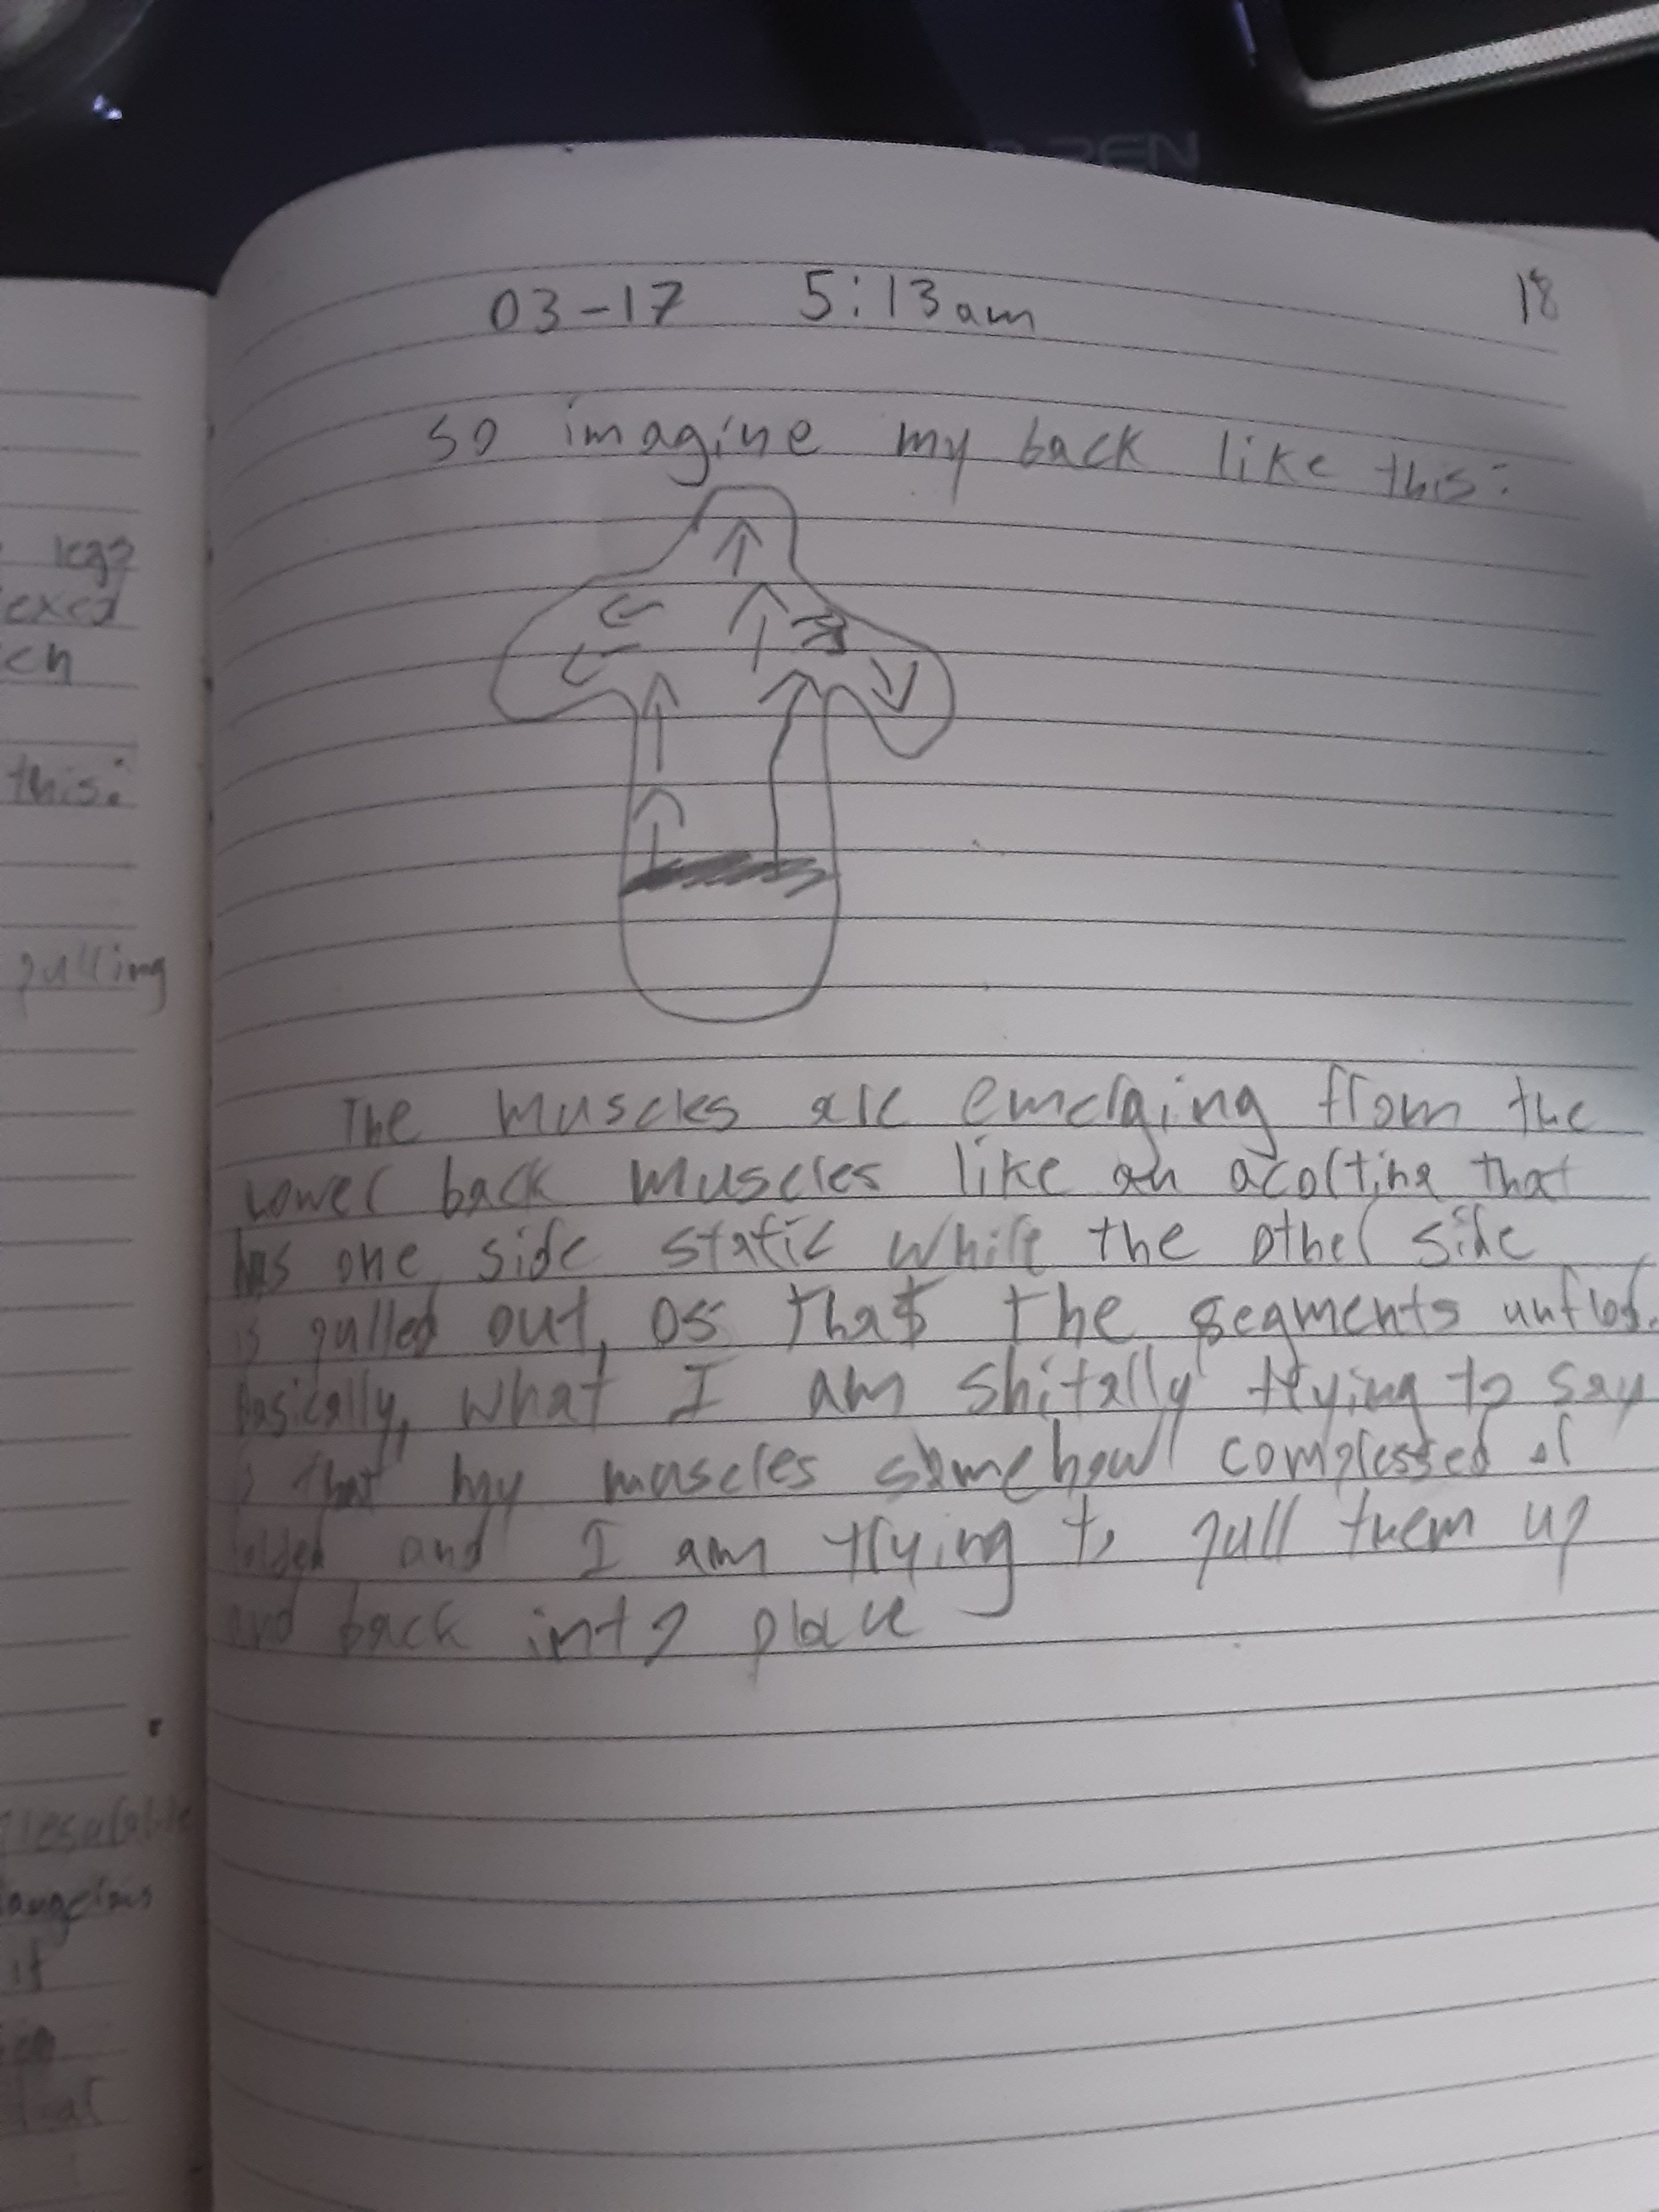 ZEN
03-17 5:13am
18
so imagine my back like this:
legs
this:
pulling
The muscles are emerging from the
lower back muscles like an acortina that
has one side static while the other side
is pulled out, os that the segments unflod.
basically, what I am shitally trying to say
is that my muscles somehow compressed or
folded and I am trying to pull them up
and back into place
it